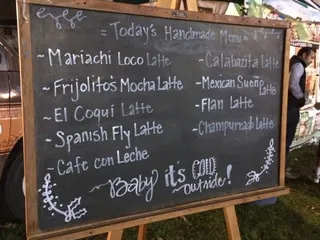 = Today's Handmade Menu =
~ Mariachi Loco Latte
~ Frijolito's Mocha Latte
~ El Coqui Latte
~ Spanish Fly Latte
~ Cafe con Leche
~ Calabazita Latte
~ Mexican Sueño Latte
~ Flan Latte
~ Champurrado Latte
~Baby it's COLD outside!